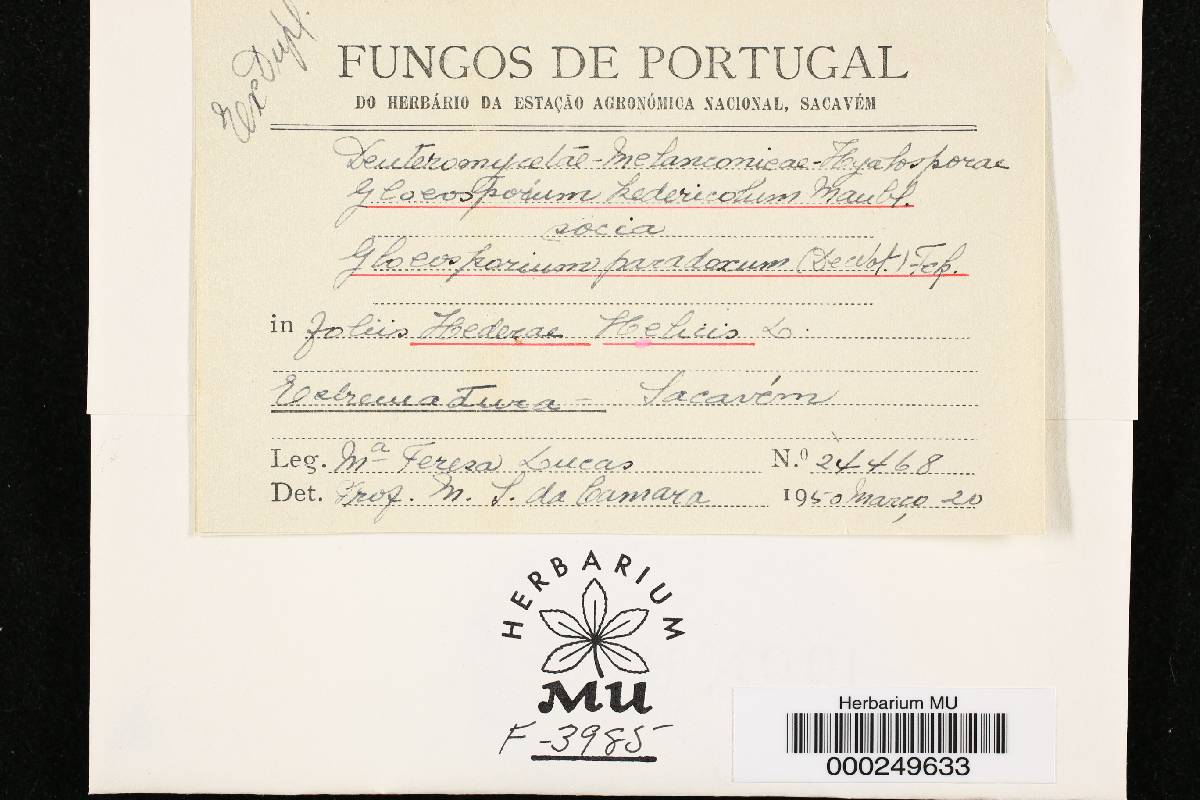 Ex Dupl.
FUNGOS DE PORTUGAL
DO HERBÁRIO DA ESTAÇÃO AGRONÓMICA NACIONAL, SACAVÉM
Deuteromycetae-Melanconieae-Hyalosporae
Gloeosporium hedericolum Maubl.
socia
Gloeosporium paradoxum (De Not.) Fck.
in foliis Hederae Helicis L.
Extremadura - Sacavém
Leg. Mª Teresa Lucas N.º 24468
Det. Prof. M. S. da Camara 1950 Março 20
HERBARIUM
MU
F-3985
Herbarium MU
000249633